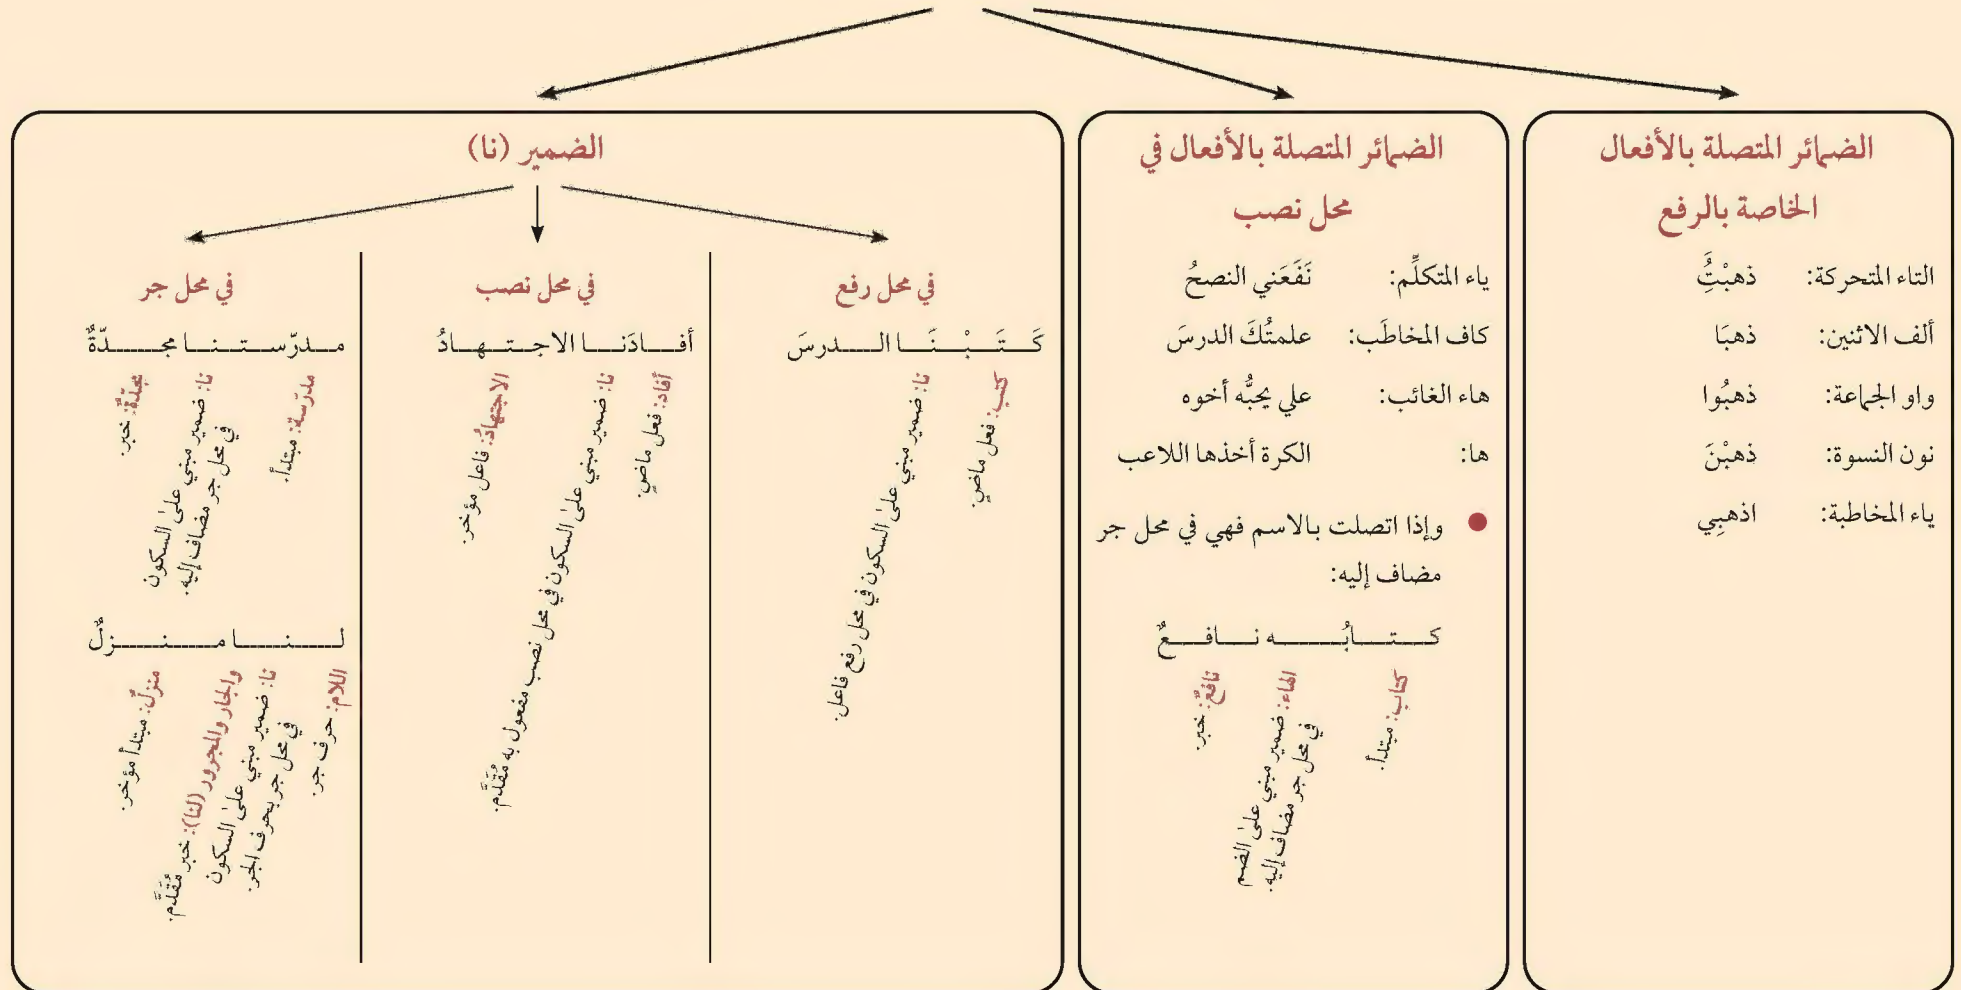 الضمائر المتصلة بالأفعال
الخاصة بالرفع
التاء المتحركة: ذهبْتَُِ
ألف الاثنين: ذهبَا
واو الجماعة: ذهبُوا
نون النسوة: ذهبْنَ
ياء المخاطبة: اذهبِي
الضمائر المتصلة بالأفعال في
محل نصب
ياء المتكلِّم: نَفَعَني النصحُ
كاف المخاطَب: علمتُكَ الدرسَ
هاء الغائب: علي يحبُّه أخوه
ها: الكرة أخذها اللاعب
● وإذا اتصلت بالاسم فهي في محل جر
مضاف إليه:
كـتـابُـه نـافـعٌ
كتاب: مبتدأ.
الهاء: ضمير مبني على الضم
في محل جر مضاف إليه.
نافعٌ: خبر.
الضمير (نا)
في محل رفع
كَـتَـبْـنَـا الـدرسَ
كتب: فعل ماضٍ.
نا: ضمير مبني على السكون في محل رفع فاعل.
في محل نصب
أفـادَنـا الاجـتـهـادُ
أفاد: فعل ماضٍ.
نا: ضمير مبني على السكون في محل نصب مفعول به مُقدَّم.
الاجتهادُ: فاعل مؤخر.
في محل جر
مـدرّسـتـنـا مجـدّةٌ
مدرّسة: مبتدأ.
نا: ضمير مبني على السكون
في محل جر مضاف إليه.
مجدّةٌ: خبر.
لـنـا مـنـزلٌ
اللام: حرف جر.
نا: ضمير مبني على السكون
في محل جر بحرف الجر.
والجار والمجرور (لنا): خبر مُقدَّم.
منزلٌ: مبتدأ مؤخر.